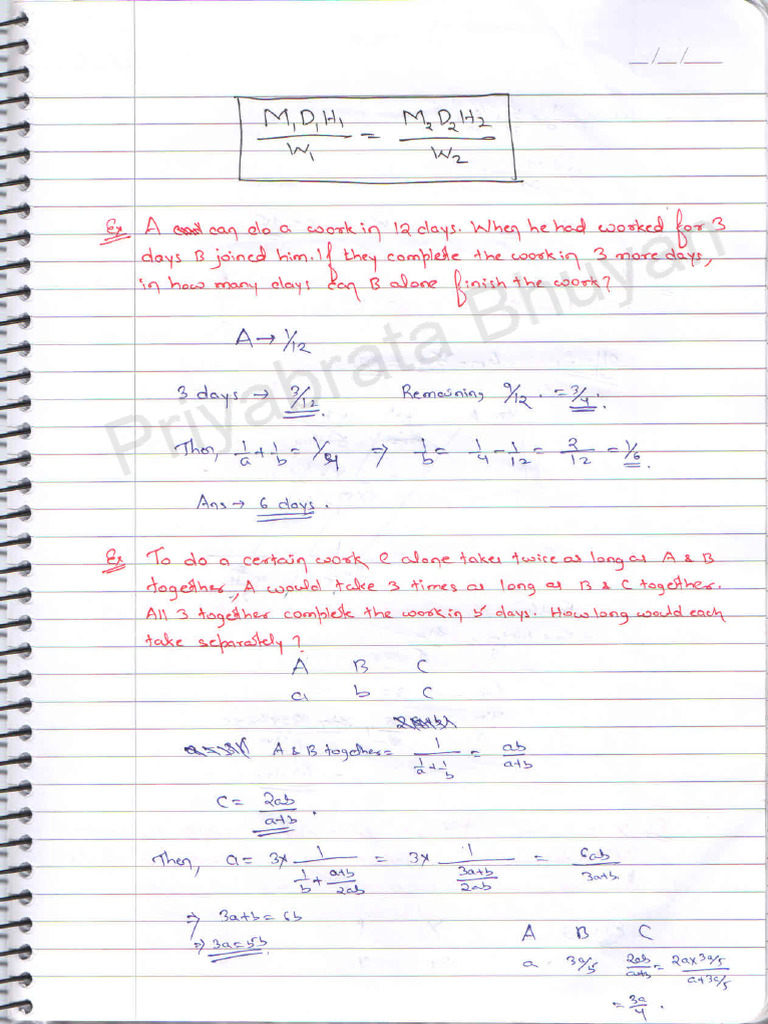 _/_/__
M₁D₁H₁/W₁ = M₂D₂H₂/W₂
Ex A can do a work in 12 days. When he had worked for 3
days B joined him. If they complete the work in 3 more days,
in how many days can B alone finish the work?
A → 1/12
3 days → 3/12 Remaining 9/12 = 3/4.
Then, 1/a + 1/b = 1/4 ⇒ 1/b = 1/4 - 1/12 = 2/12 = 1/6.
Ans → 6 days.
Ex To do a certain work C alone takes twice as long as A & B
together, A would take 3 times as long as B & C together.
All 3 together complete the work in 5 days. How long would each
take separately?
A B C
a b c
A & B together = 1/(1/a + 1/b) = ab/(a+b)
C = 2ab/(a+b).
Then, a = 3x 1/(1/b + (a+b)/2ab) = 3x 1/((3a+b)/2ab) = 6ab/(3a+b)
⇒ 3a+b = 6b
⇒ 3a = 5b
A B C
a 3a/5 2ab/(a+b) = (2a x 3a/5)/(a+3a/5)
= 3a/4.
Priyabrata Bhuyan